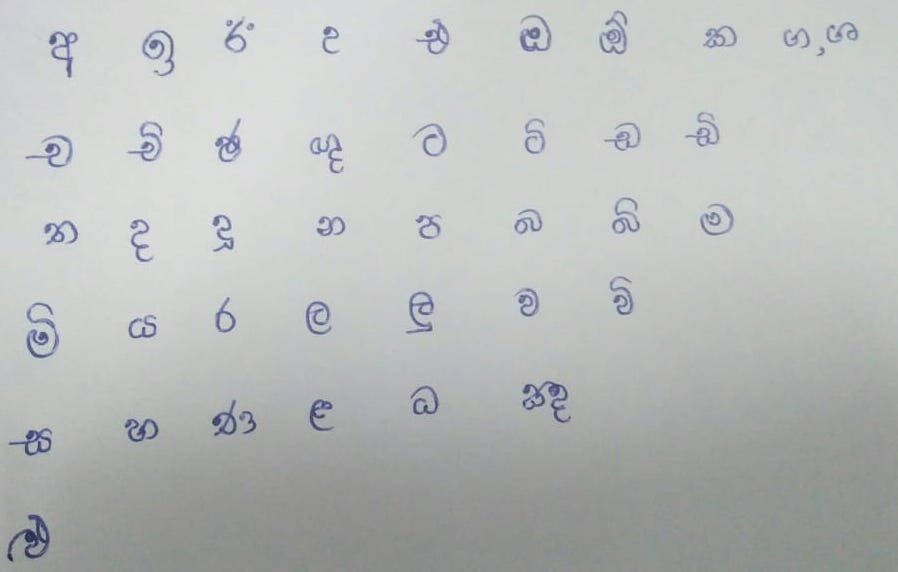 අ ඉ ඊ උ එ ඔ ඕ ක ග,ශ
ච ච් ජ ඳ ට ට් ඩ ඩ්
ත ද දු න ප බ බ් ම
ම් ය ර ල ලු ව ව්
ස හ ණ ළ ධ ඤ